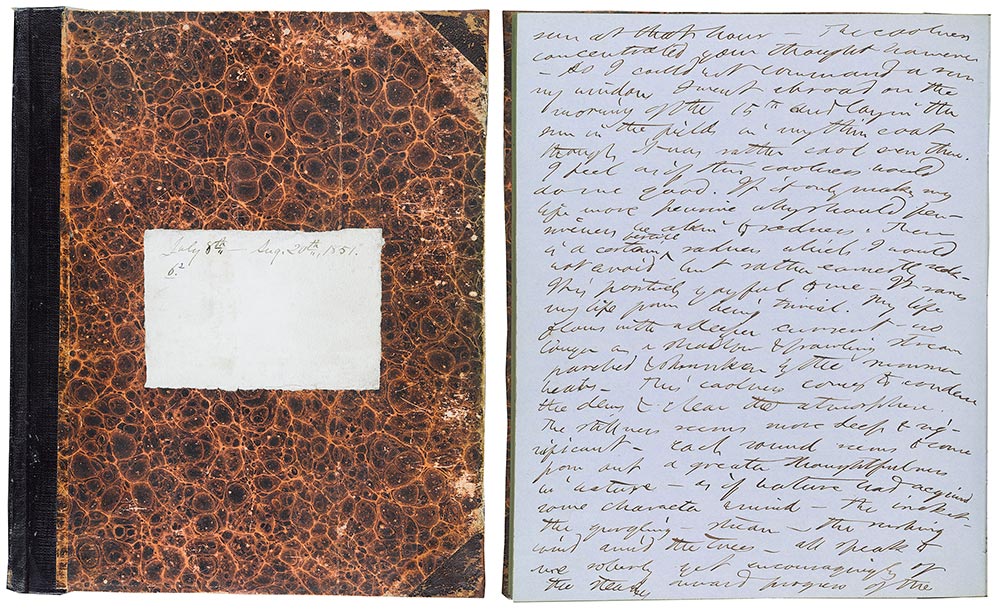 July 8th — Aug. 20th, 1851.
sun at that hour — The coolness
concentrated your thought however
— As I could not command a sunny
window I went abroad on the
morning of the 15th and lay in the
sun in the fields in my thin coat
though it was rather cool even there.
I feel as if this coolness would
do me good. If it only makes my
life more pensive why should pen-
siveness be akin to sadness. There
is a certain fertile sadness which I would
not avoid but rather earnestly seek—
It is positively joyful to me— It saves
my life from being trivial. My life
flows with a deeper current — no
longer as a shallow & brawling stream
parched & shrunken by the summer
heats— This coolness comes to condense
the dews & clear the atmosphere.
The stillness seems more deep & sig-
nificant — Each sound seems to come
from out a greater thoughtfulness
in nature — as if nature had acquired
some character & mind — the cricket—
the gurgling— stream — the rushing
wind amid the trees — all speak to
me soberly yet encouragingly of
the steady onward progress of the